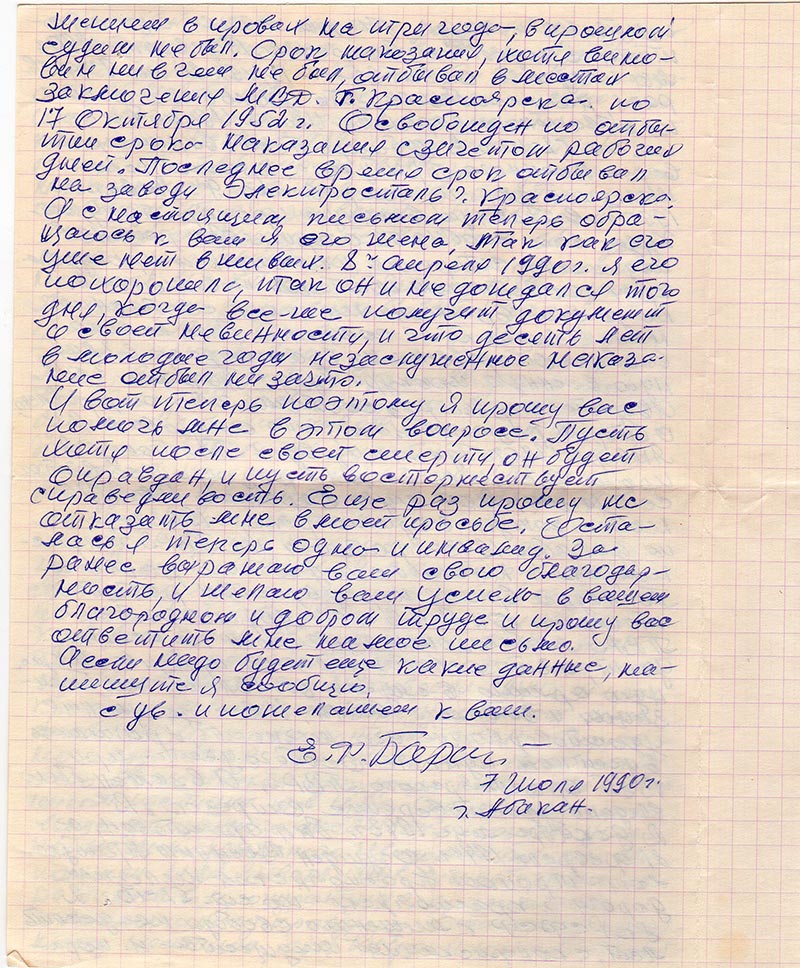 жением в правах на три года, в прошлом
судим не был. Срок наказания, хотя вино-
вен ни в чем не был, отбывал в местах
заключения МВД. г. Красноярска. по
17 Октября 1952 г. Освобожден по отбы-
тии срока наказания с зачетом рабочих
дней. Последнее время срок отбывал
на заводе Электросталь г. Красноярска.
И с настоящим письмом теперь обра-
щаюсь к вам я его жена, так как его
уже нет в живых. 8го апреля 1990 г. я его
похоронила, и так он и не дождался того
дня, когда все-же получит документ
о своей невинности, и что десять лет
в молодые годы незаслуженное наказа-
ние отбыл ни за что.
И вот теперь поэтому я прошу вас
помочь мне в этом вопросе. Пусть
хотя после своей смерти, он будет
оправдан, и пусть восторжествует
справедливость. Еще раз прошу не
отказать мне в моей просьбе. Оста-
лась я теперь одна и инвалид. За
ранее выражаю вам свою благодар-
ность, и желаю вам успеха в вашем
благородном и добром труде и прошу вас
ответить мне на мое письмо.
А если надо будет еще какие данные, на-
пишите я сообщу.
с ув. и пожеланием к вам.
7 Июля 1990 г.
г. Абакан.